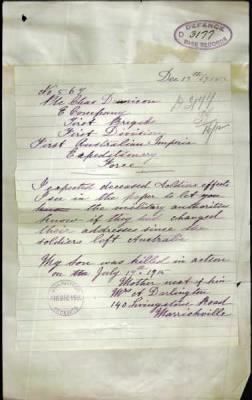 DEFENCE
D 3177
BASE RECORDS
Dec 17th 1915
No 567
Pte Chas Dennison
E Company
First Brigade
First Division
First Australian Imperial
Expeditionary
Force
I expected deceased Soldiers effects
I see in the paper to let you
the military authorities
know if they had changed
their addresses since the
soldiers left Australia
My son was killed in action
on July 17th 1915
Mother next of kin
Mrs A Darlington
140 Livingstone Road
Marrickville